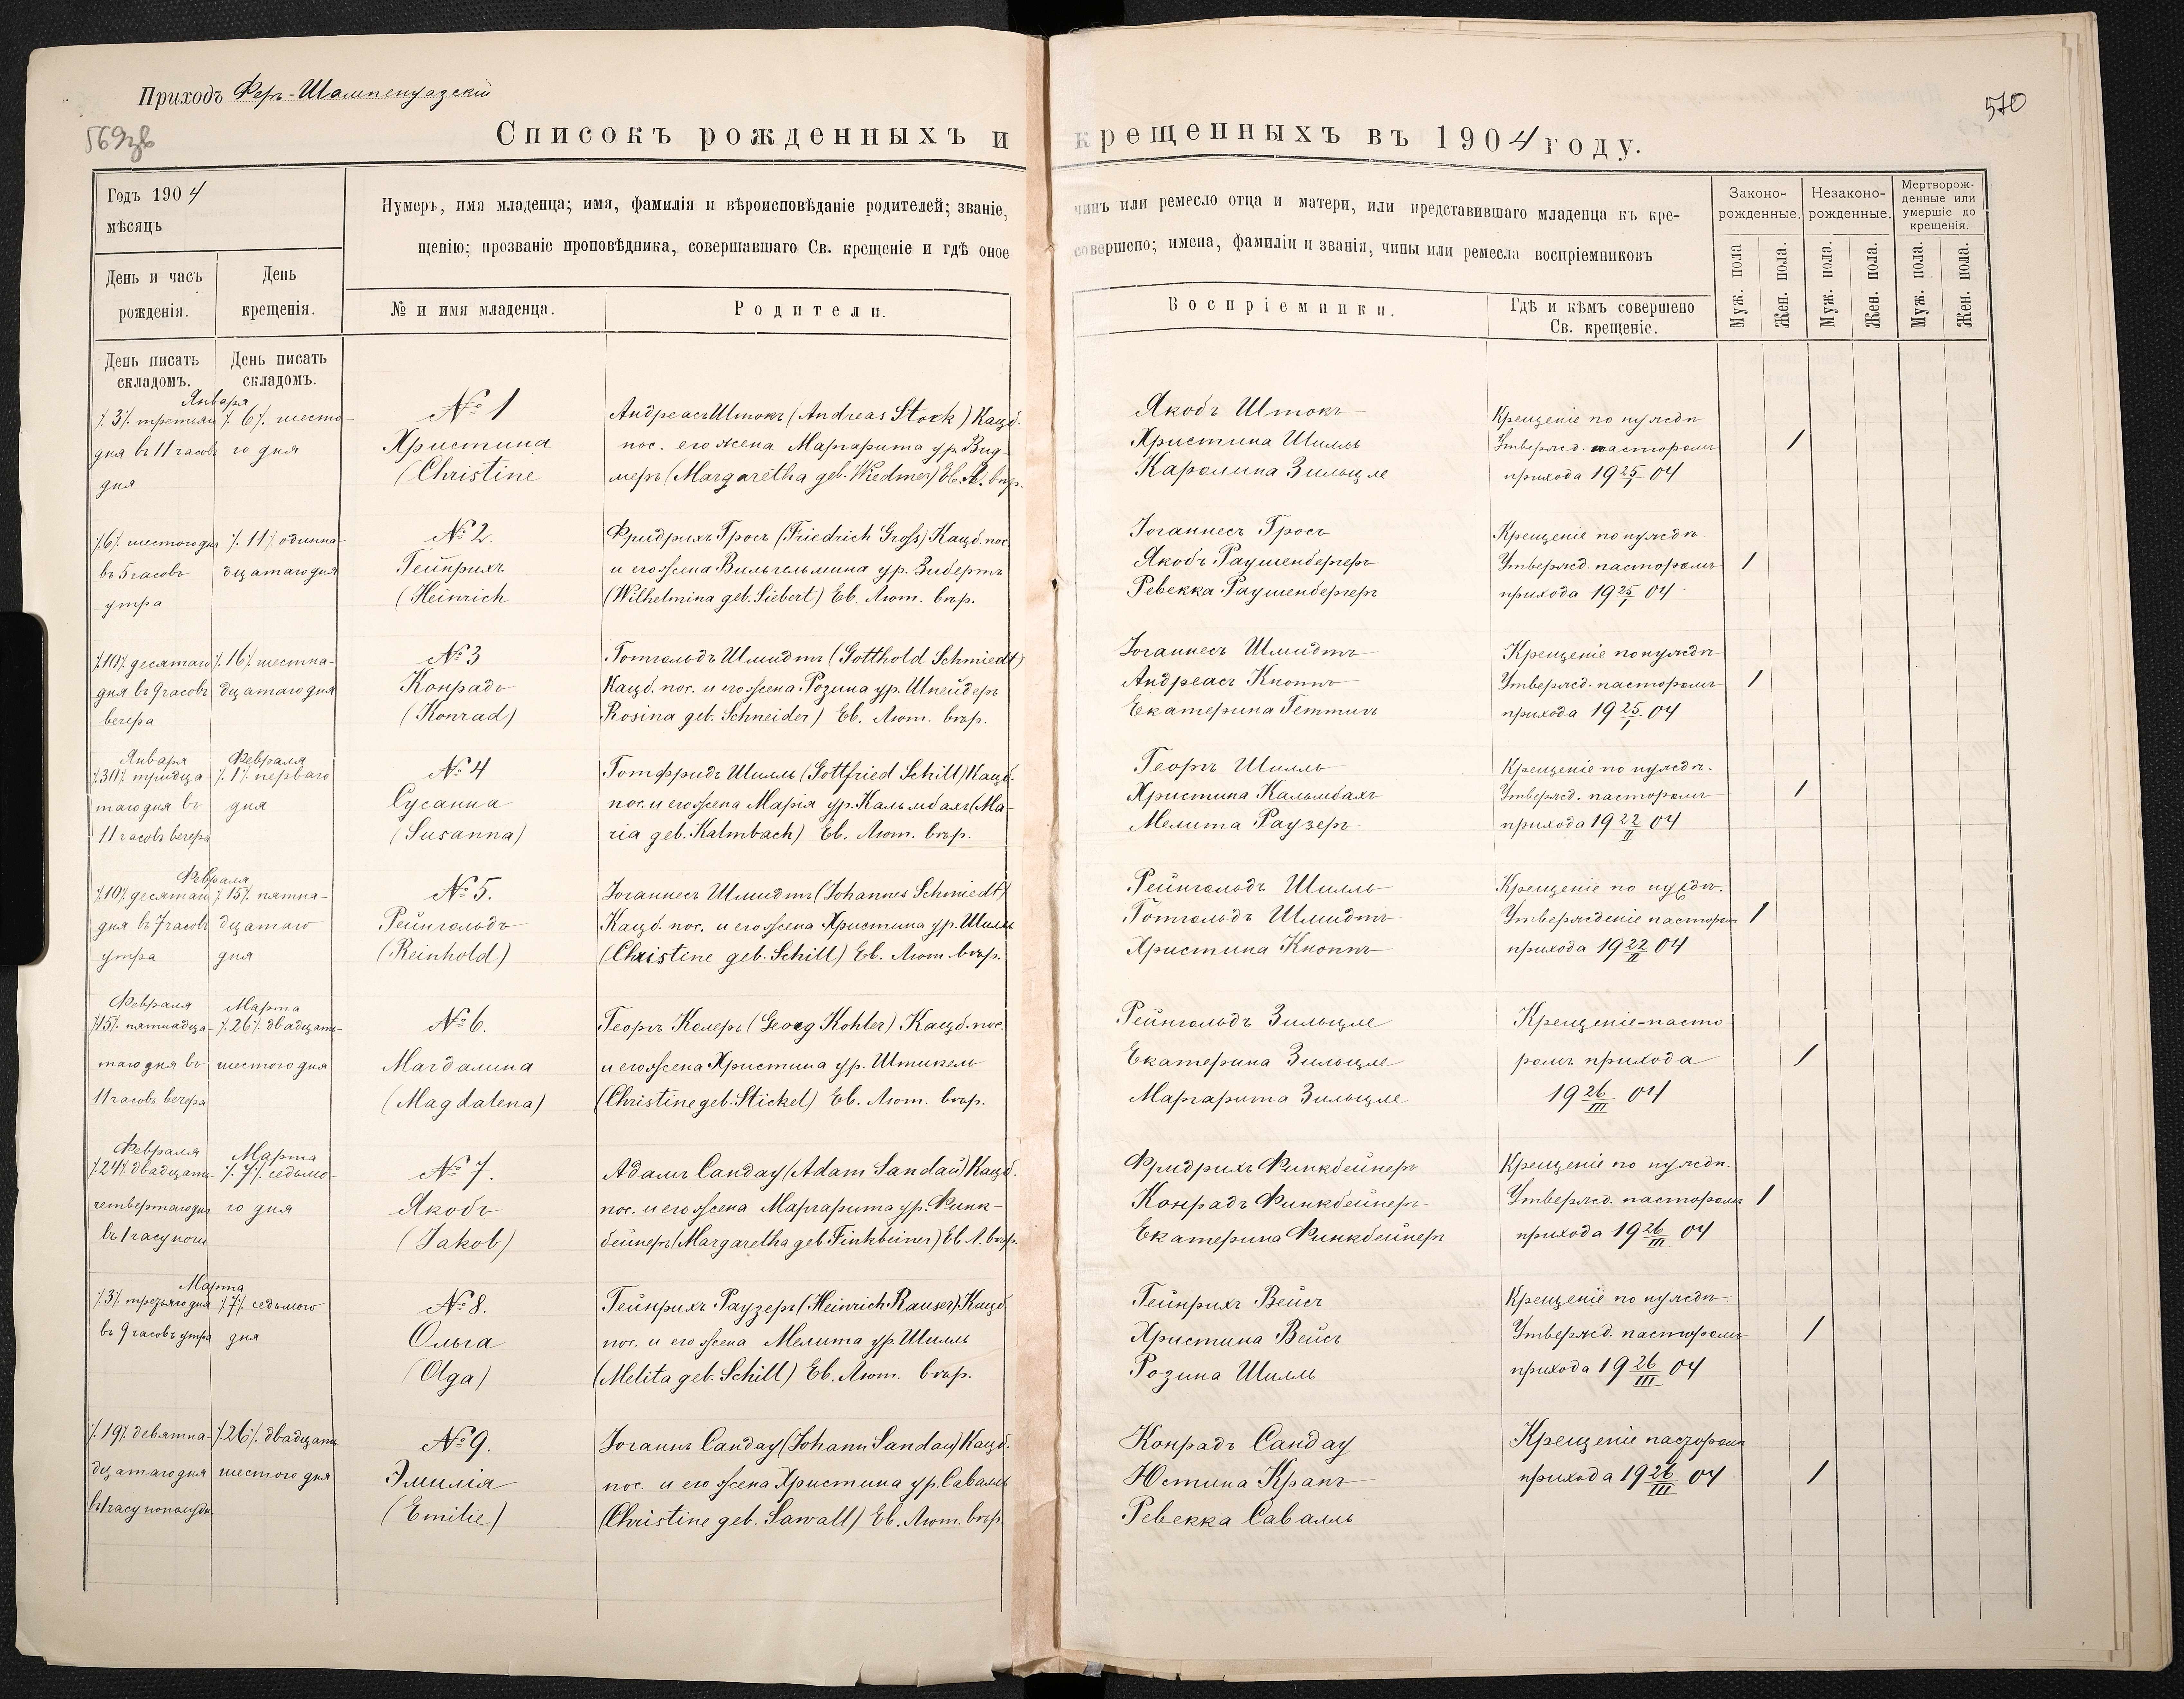 Приходъ Феръ-Шампенуазскій
569зв
570
Списокъ рожденныхъ и крещенныхъ въ 1904 году.
Годъ 1904
мѣсяцъ
День и часъ
рожденія.
День
крещенія.
Нумеръ, имя младенца; имя, фамилія и вѣроисповѣданіе родителей; званіе, чинъ или ремесло отца и матери, или представившаго младенца къ кре-
щенію; прозваніе проповѣдника, совершавшаго Св. крещеніе и гдѣ оное совершено; имена, фамиліи и званія, чины или ремесла воспріемниковъ
№ и имя младенца.
Родители.
Воспріемники.
Гдѣ и кѣмъ совершено
Св. крещеніе.
Законо-
рожденные.
Незаконо-
рожденные.
Мертворож-
денные или
умершіе до
крещенія.
Муж. пола
Жен. пола.
Муж. пола.
Жен. пола.
Муж. пола.
Жен. пола.
День писать
складомъ.
День писать
складомъ.
Января
/.3/. третьяго
дня въ 11 часовъ
дня
/.6/. шесто-
го дня
№ 1
Христина
(Christine
Андреасъ Штокъ (Andreas Stock) Кацб.
пос. его жена Маргарита ур. Вид-
меръ (Margaretha geb. Wiedmer) Ев. Л. вѣр.
Якобъ Штокъ
Христина Шилль
Каролина Зильцле
Крещеніе по нуждѣ
Утвержд. пасторомъ
прихода 19 25/I 04
/
/.6/. шестого дня
въ 5 часовъ
утра
/. 11/. одинна-
дцатаго дня
№ 2.
Гейнрихъ
(Heinrich
Фридрихъ Гросъ (Friedrich Groſs) Кацб. пос.
и его жена Вильгельмина ур. Зибертъ
(Wilhelmina geb. Siebert) Ев. Лют. вѣр.
Іоганнесъ Гросъ
Якобъ Раушенбергеръ
Ревекка Раушенбергеръ
Крещеніе по нуждѣ.
Утвержд. пасторомъ
прихода 19 25/I 04
/
/.10/. десятаго
дня въ 9 часовъ
вечера
/.16/. шестна-
дцатаго дня
№ 3
Конрадъ
(Konrad)
Готгольдъ Шмидтъ (Gotthold Schmiedt)
Кацб. пос. и его жена Розина ур. Шнейдеръ
Rosina geb. Schneider) Ев. Лют. вѣр.
Іоганнесъ Шмидтъ
Андреасъ Кноппъ
Екатерина Геттигъ
Крещеніе по нуждѣ
Утвержд. пасторомъ
прихода 19 25/I 04
/
Января
/.30/. тридца-
таго дня въ
11 часовъ вечера
Февраля
/. 1/. перваго
дня
№ 4
Сусанна
(Susanna)
Готфридъ Шилль (Gottfried Schill) Кацб.
пос. и его жена Марія ур. Кальмбахъ (Ma-
ria geb. Kalmbach) Ев. Лют. вѣр.
Георгъ Шилль
Христина Кальмбахъ
Мелита Раузеръ
Крещеніе по нуждѣ.
Утвержд. пасторомъ
прихода 19 22/II 04
/
Февраля
/.10/. десятаго
дня въ 7 часовъ
утра
/.15/. пятна-
дцатаго
дня
№ 5.
Рейнгольдъ
(Reinhold)
Іоганнесъ Шмидтъ (Johannes Schmiedt)
Кацб. пос. и его жена Христина ур. Шилль
(Christine geb. Schill) Ев. Лют. вѣр.
Рейнгольдъ Шилль
Готгольдъ Шмидтъ
Христина Кноппъ
Крещеніе по нуждѣ.
Утвержденіе пасторомъ
прихода 19 22/II 04
/
Февраля
/.15/. пятнадца-
таго дня въ
11 часовъ вечера
Марта
/.26/. двадцать-
шестого дня
№ 6.
Магдалина
(Magdalena)
Георгъ Колеръ (Georg Kohler) Кацб. пос.
и его жена Христина ур. Штикель
(Christine geb. Stickel) Ев. Лют. вѣр.
Рейнгольдъ Зильцле
Екатерина Зильцле
Маргарита Зильцле
Крещеніе-пасто-
ромъ прихода
19 26/III 04
/
Февраля
/.24/. двадцать-
четвертаго дня
въ 1 часу ночи
Марта
/. 7/. седьмо-
го дня
№ 7.
Якобъ
(Jakob)
Адамъ Сандау (Adam Sandau) Кацб.
пос. и его жена Маргарита ур. Финк-
бейнеръ (Margaretha geb. Finkbeiner) Ев. Л. вѣр.
Фридрихъ Финкбейнеръ
Конрадъ Финкбейнеръ
Екатерина Финкбейнеръ
Крещеніе по нуждѣ.
Утвержд. пасторомъ
прихода 19 26/III 04
/
Марта
/.3/. третьяго дня
въ 9 часовъ утра
/.7/. седьмого
дня
№ 8.
Ольга
(Olga)
Гейнрихъ Раузеръ (Heinrich Rauser) Кацб.
пос. и его жена Мелита ур. Шилль
(Melita geb. Schill) Ев. Лют. вѣр.
Гейнрихъ Вейсъ
Христина Вейсъ
Розина Шилль
Крещеніе по нуждѣ.
Утвержд. пасторомъ
прихода 19 26/III 04
/
/.19/. девятна-
дцатаго дня
въ 1 часу пополудн.
/.26/. двадцать
шестого дня
№ 9.
Эмилія
(Emilie)
Іоганнъ Сандау (Johann Sandau) Кацб.
пос. и его жена Христина ур. Савалль
(Christine geb. Sawall) Ев. Лют. вѣр.
Конрадъ Сандау
Юстина Крапъ
Ревекка Савалль
Крещеніе пасторомъ
прихода 19 26/III 04
/